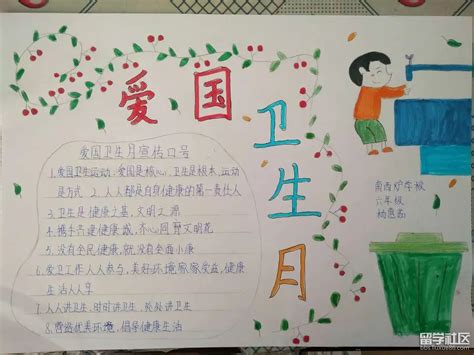 爱国
卫生月
爱国卫生月宣传口号
1.爱国卫生运动,爱国是核心,卫生是根本,运动
是方式 2.人人都是自身健康的第一责任人
3.卫生是健康之基,文明之源
4.携手共建健康城,齐心同育文明花
5.没有全民健康,就没有全面小康
6.爱卫工作人人参与,美好环境家家受益,健康
生活人人享
7.人人讲卫生,时时讲卫生,处处讲卫生
8.营造优美环境,倡导健康生活
六年级
留学社区